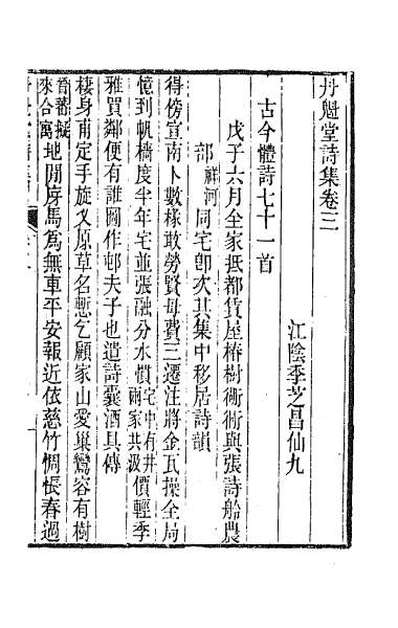 丹魁堂詩集卷三
江陰季芝昌仙九
古今體詩七十一首
戊子六月全家抵都賃屋椿樹衚衕與張詩船農
部祥河同宅卽次其集中移居詩韻
得傍宣南卜數椽敢勞賢母費三遷注將金瓦操全局
憶到帆檣度半年宅並張融分水慣宅中有井兩家共汲價輕季
雅買鄰便有誰圖作邨夫子也遣詩囊酒具傳
棲身甫定手旋叉原草名慙乞顧家山愛巢鸞容有樹
晉藩擬來合寓地開房馬爲無車平安報近依慈竹惆悵春過